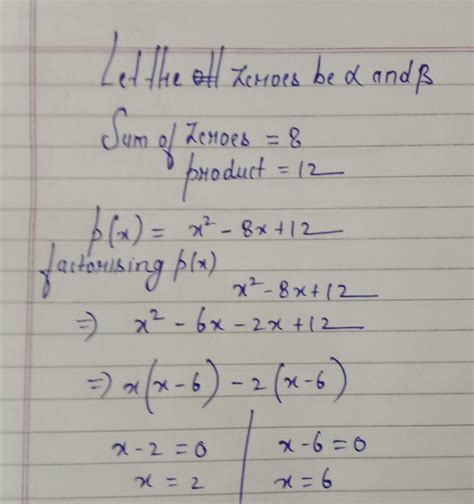 Let the zeroes be α and β
Sum of zeroes = 8
product = 12
p(x) = x² - 8x + 12
factorising p(x)
x² - 8x + 12
⇒ x² - 6x - 2x + 12
⇒ x(x-6) - 2(x-6)
x - 2 = 0 | x - 6 = 0
x = 2 | x = 6